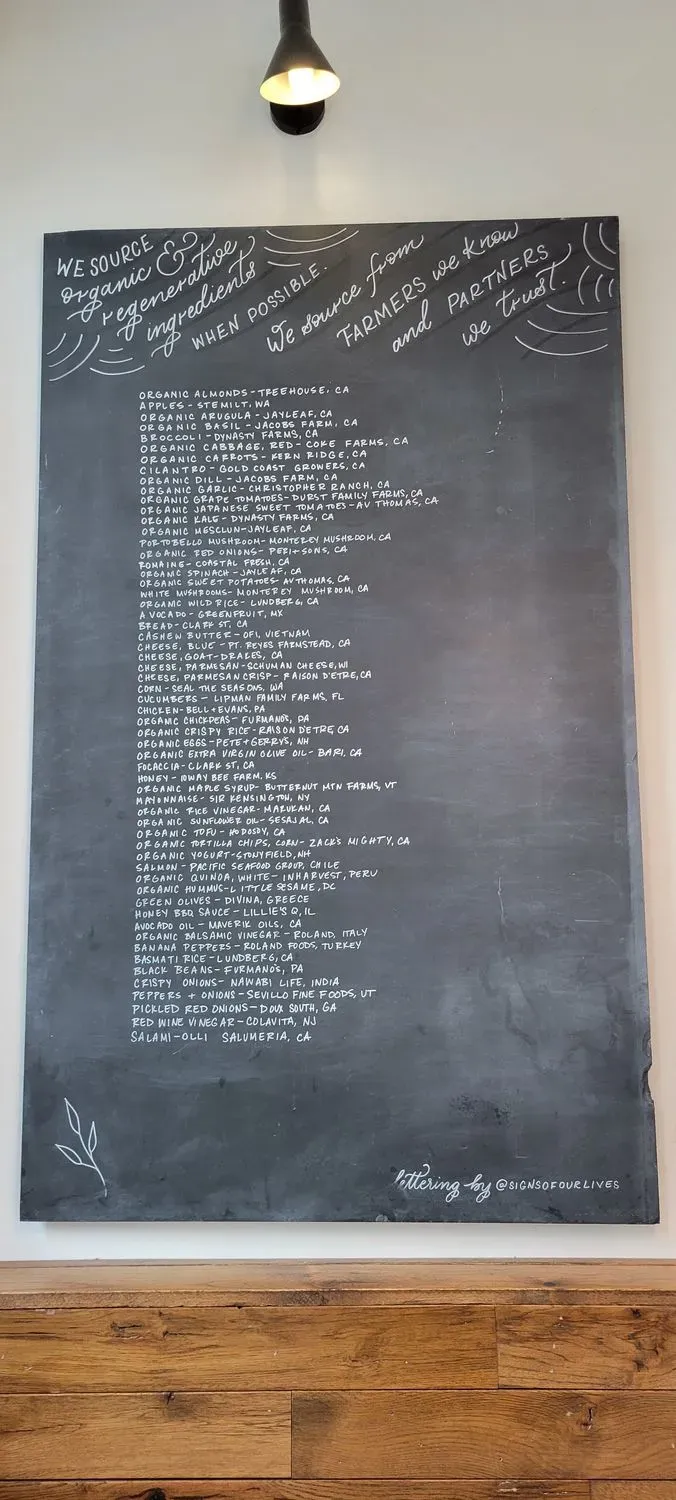 WE SOURCE
organic &
regenerative
ingredients
WHEN POSSIBLE.
We source from
FARMERS we know
and PARTNERS
we trust.
ORGANIC ALMONDS - TREEHOUSE, CA
APPLES - STEMILT, WA
ORGANIC ARUGULA - JAYLEAF, CA
ORGANIC BASIL - JACOBS FARM, CA
BROCCOLI - DYNASTY FARMS, CA
ORGANIC CABBAGE, RED - COKE FARMS, CA
ORGANIC CARROTS - KERN RIDGE, CA
CILANTRO - GOLD COAST GROWERS, CA
ORGANIC DILL - JACOBS FARM, CA
ORGANIC GARLIC - CHRISTOPHER RANCH, CA
ORGANIC GRAPE TOMATOES - DURST FAMILY FARMS, CA
ORGANIC JAPANESE SWEET TOMATOES - AV THOMAS, CA
ORGANIC KALE - DYNASTY FARMS, CA
ORGANIC MESCLUN - JAYLEAF, CA
PORTOBELLO MUSHROOM - MONTEREY MUSHROOM, CA
ORGANIC RED ONIONS - PERI + SONS, CA
ROMAINE - COASTAL FRESH, CA
ORGANIC SPINACH - JAYLEAF, CA
ORGANIC SWEET POTATOES - AV THOMAS, CA
WHITE MUSHROOMS - MONTEREY MUSHROOM, CA
ORGANIC WILD RICE - LUNDBERG, CA
AVOCADO - GREENFRUIT, MX
BREAD - CLARK ST, CA
CASHEW BUTTER - OFI, VIETNAM
CHEESE, BLUE - PT. REYES FARMSTEAD, CA
CHEESE, GOAT - DRAKES, CA
CHEESE, PARMESAN - SCHUMAN CHEESE, WI
CHEESE, PARMESAN CRISP - RAISON D'ETRE, CA
CORN - SEAL THE SEASONS, WA
CUCUMBERS - LIPMAN FAMILY FARMS, FL
CHICKEN - BELL + EVANS, PA
ORGANIC CHICKPEAS - FURMANO'S, PA
ORGANIC CRISPY RICE - RAISON D'ETRE, CA
ORGANIC EGGS - PETE + GERRY'S, NH
ORGANIC EXTRA VIRGIN OLIVE OIL - BARI, CA
FOCACCIA - CLARK ST, CA
HONEY - IOWAY BEE FARM, KS
ORGANIC MAPLE SYRUP - BUTTERNUT MTN FARMS, VT
MAYONNAISE - SIR KENSINGTON, NY
ORGANIC RICE VINEGAR - MARUKAN, CA
ORGANIC SUNFLOWER OIL - SESAJAL, CA
ORGANIC TOFU - HODOSOY, CA
ORGANIC TORTILLA CHIPS, CORN - ZACK'S MIGHTY, CA
ORGANIC YOGURT - STONYFIELD, NH
SALMON - PACIFIC SEAFOOD GROUP, CHILE
ORGANIC QUINOA, WHITE - INHARVEST, PERU
ORGANIC HUMMUS - LITTLE SESAME, DC
GREEN OLIVES - DIVINA, GREECE
HONEY BBQ SAUCE - LILLIE'S Q, IL
AVOCADO OIL - MAVERIK OILS, CA
ORGANIC BALSAMIC VINEGAR - ROLAND, ITALY
BANANA PEPPERS - ROLAND FOODS, TURKEY
BASMATI RICE - LUNDBERG, CA
BLACK BEANS - FURMANO'S, PA
CRISPY ONIONS - NAWABI LIFE, INDIA
PEPPERS + ONIONS - SEVILLO FINE FOODS, UT
PICKLED RED ONIONS - DOUX SOUTH, GA
RED WINE VINEGAR - COLAVITA, NJ
SALAMI - OLLI SALUMERIA, CA
lettering by @SIGNSOFOURLIVES